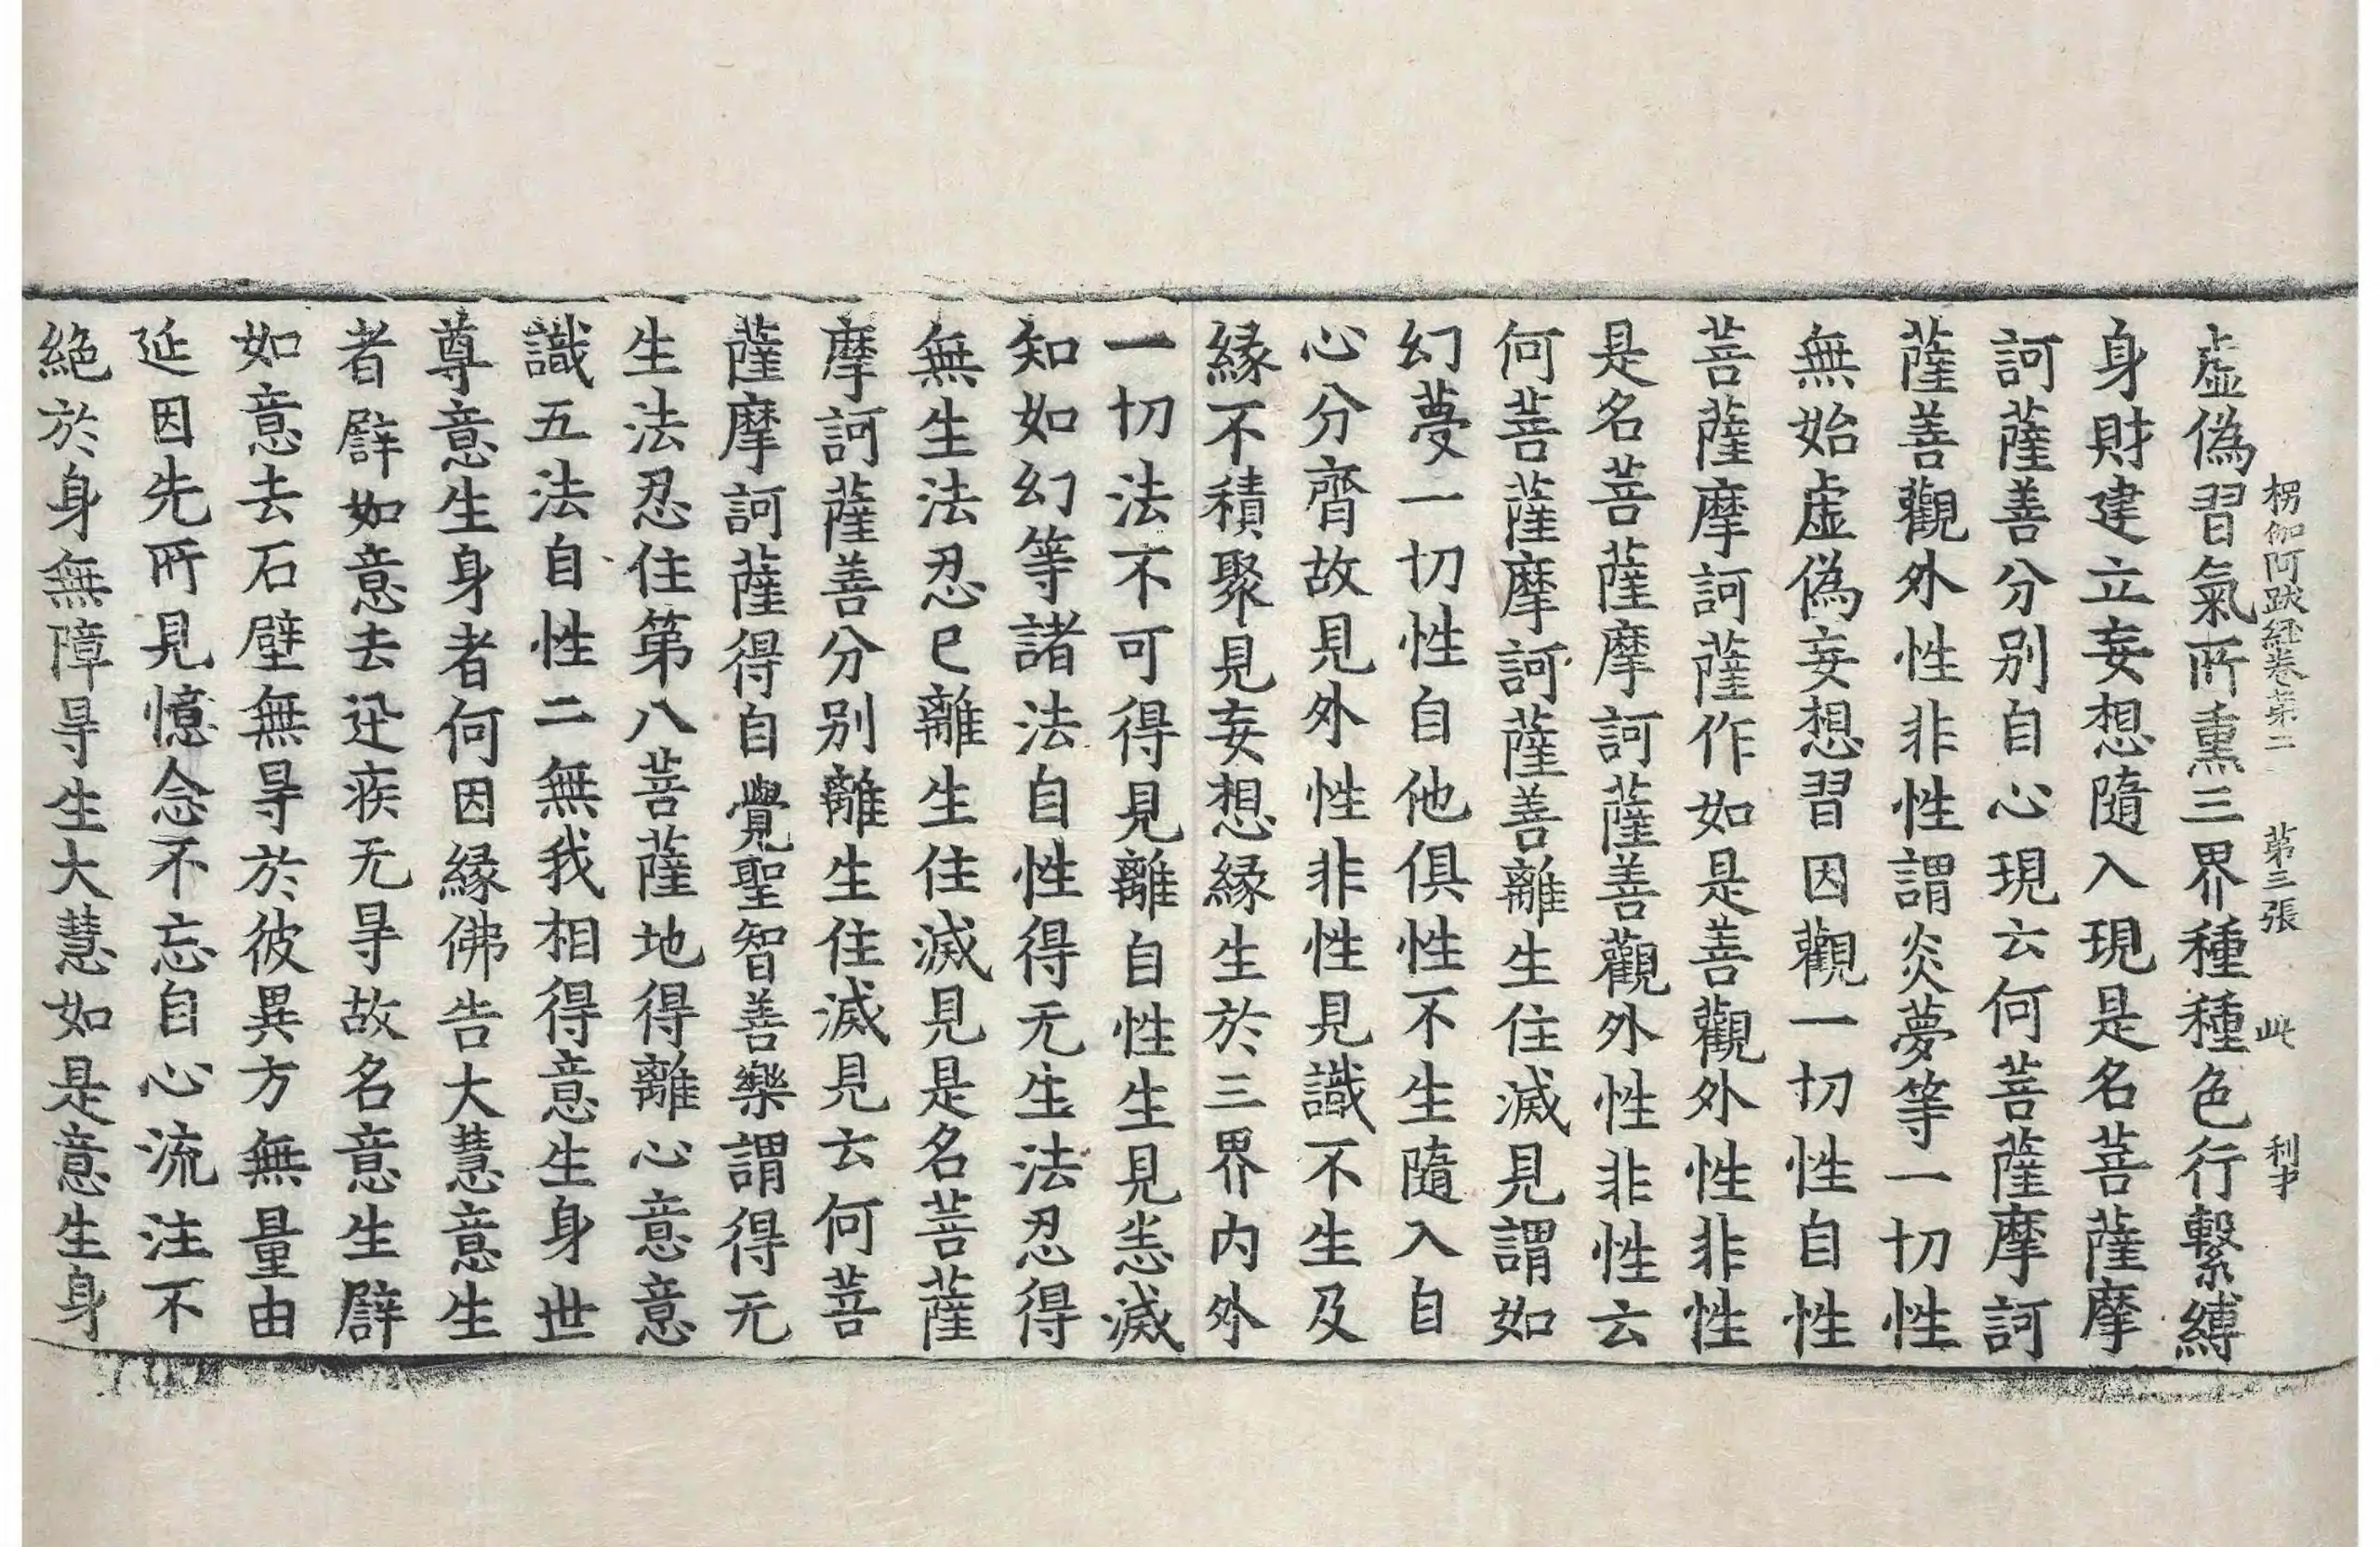 楞伽阿跋經卷第二 第三張 此 利才
虛偽習氣所熏三界種種色行繫縛
身財建立妄想隨入現是名菩薩摩
訶薩善分别自心現云何菩薩摩訶
薩善觀外性非性謂炎夢等一切性
無始虛偽妄想習因觀一切性自性
菩薩摩訶薩作如是善觀外性非性
是名菩薩摩訶薩善觀外性非性云
何菩薩摩訶薩善離生住滅見謂如
幻夢一切性自他俱性不生隨入自
心分齊故見外性非性見識不生及
緣不積聚見妄想緣生於三界內外
一切法不可得見離自性生見恚滅
知如幻等諸法自性得无生法忍得
無生法忍已離生住滅見是名菩薩
摩訶薩善分别離生住滅見云何菩
薩摩訶薩得自覺聖智善樂謂得无
生法忍住第八菩薩地得離心意意
識五法自性二無我相得意生身世
尊意生身者何因緣佛告大慧意生
者譬如意去迅疾无㝵故名意生譬
如意去石壁無㝵於彼異方無量由
延因先所見憶念不忘自心流注不
絕於身無障㝵生大慧如是意生身